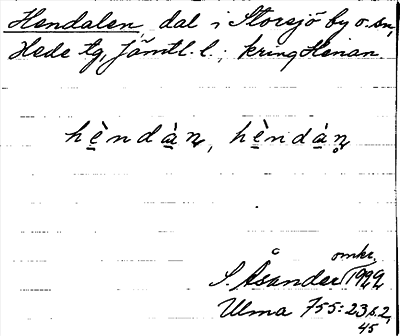 Hendalen, dal i Storsjö by o. sn,
Hede tg, Jämtl. l.; kring Henan
hèndàn, hèndàn̥
omkr.
S. Åsander 1922
Ulma 755: 23 s. 2,
45